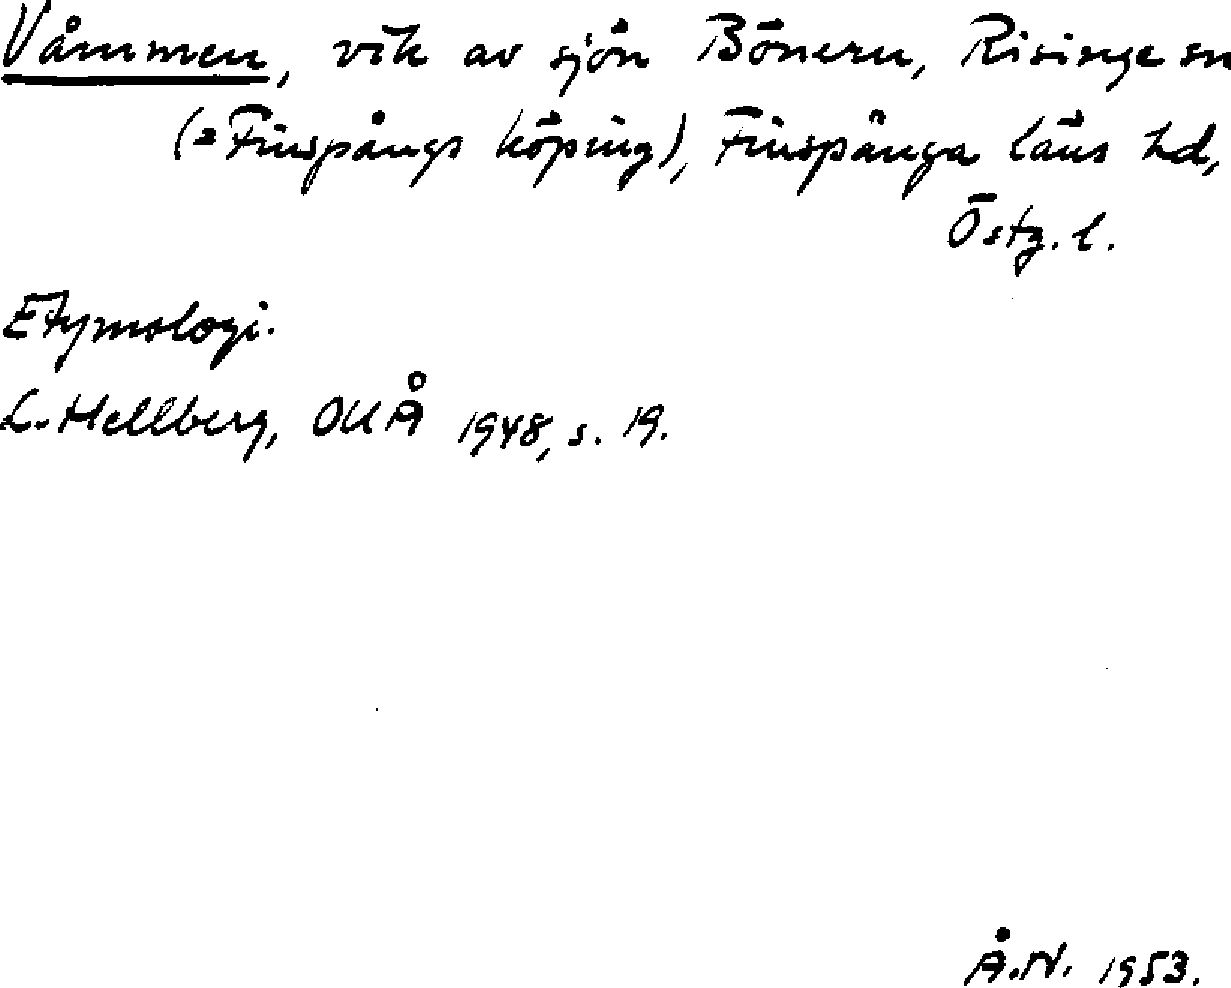 Våmmen, vik av sjön Bönern, Risinge sn
(= Finspångs köping), Finspånga läns hd,
Östg. l.
Etymologi.
L. Hellberg, OUÅ 1948, s. 19.
Å.N. 1953.